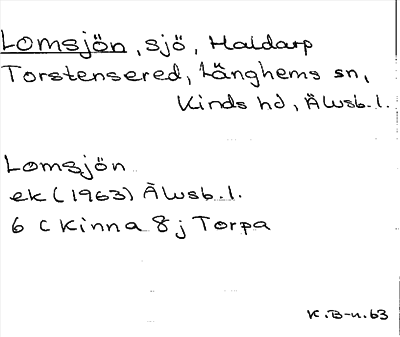 Lomsjön, sjö, Haldarp
Torstensered, Länghems sn,
Kinds hd, Älvsb. l.
Lomsjön
ek (1963) Älvsb. l.
6 C Kinna 8 j Torpa
K. B-n. 63